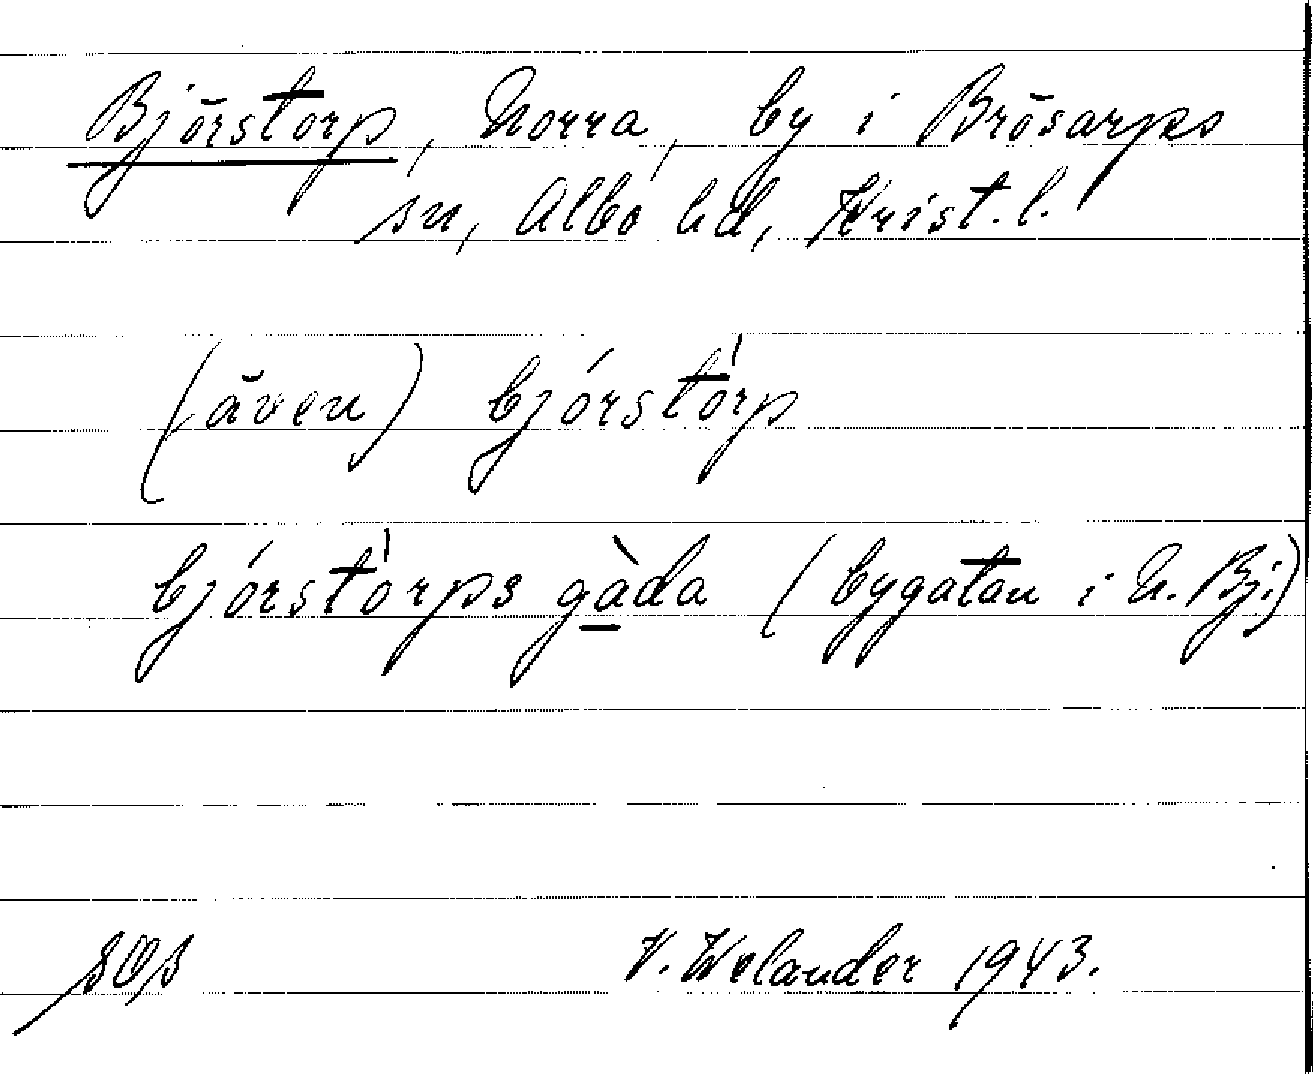 Björstorp, Norra, by i Brösarps
sn, Albo hd, Krist. l.
(även) bjórstórp
bjórstórps gàda (bygatan i N. Bj.)
SOS V. Welander 1943.